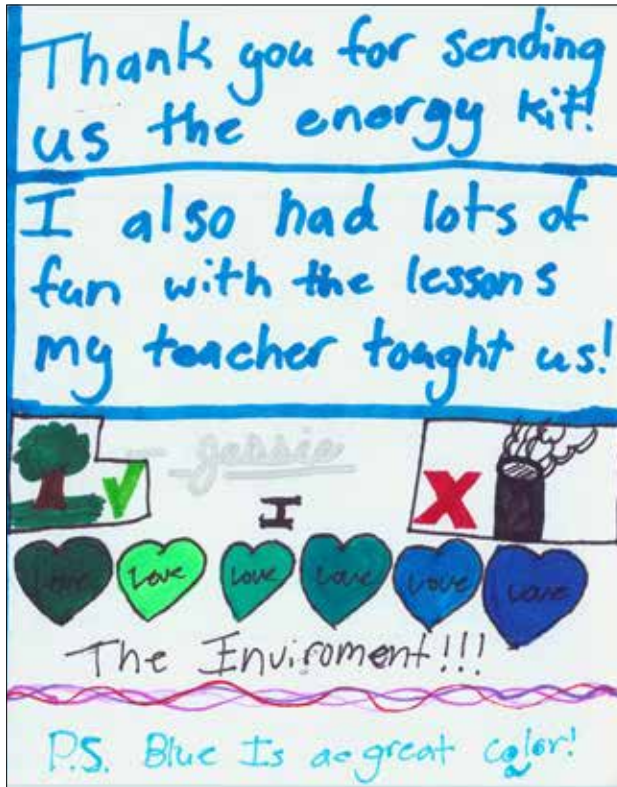 Thank you for sending
us the energy kit!
I also had lots of
fun with the lessons
my teacher tought us!
- Jessie
I
Love Love Love Love Love Love
The Enviroment!!!
P.S. Blue Is a great color!